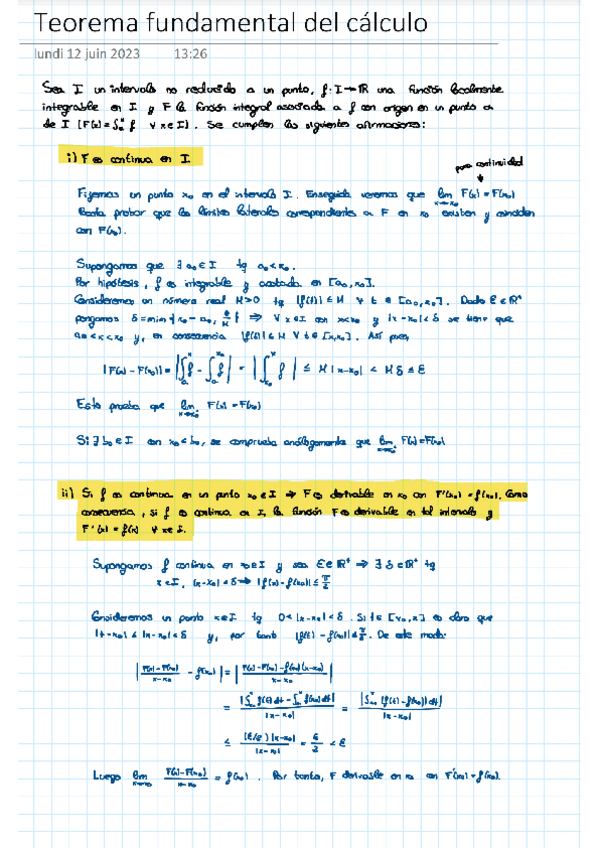 Teorema fundamental del cálculo
lundi 12 juin 2023 13:26
Sea I un intervalo no reducido a un punto, f: I→ℝ una función localmente
integrable en I y F la función integral asociada a f con origen en un punto a
de I [F(x)=∫ₐˣ f ∀ x∈I]. Se cumplen las siguientes afirmaciones:
i) F es continua en I.
para continuidad
↓
Fijemos un punto x₀ en el intervalo I. Enseguida veremos que lim_{x→x₀} F(x) = F(x₀)
Basta probar que los límites laterales correspondientes a F en x₀ existen y coinciden
con F(x₀).
Supongamos que ∃ a₀∈I tq a₀<x₀.
Por hipótesis, f es integrable y acotada en [a₀,x₀].
Consideremos un número real M>0 tq |f(t)|≤M ∀ t∈[a₀,x₀]. Dado ε∈ℝ⁺
pongamos δ=min{x₀-a₀, ε/M} ⇒ ∀ x∈I con x<x₀ y |x-x₀|<δ se tiene que
a₀<x<x₀ y, en consecuencia |f(t)|≤M ∀ t∈[x,x₀]. Así pues,
|F(x)-F(x₀)| = |∫ₐˣ f - ∫ₐ^{x₀} f| = |∫_{x₀}^x f| ≤ M|x-x₀| < Mδ ≤ ε
Esto prueba que lim_{x→x₀⁻} F(x) = F(x₀)
Si ∃ b₀∈I con x₀<b₀, se comprueba análogamente que lim_{x→x₀⁺} F(x)=F(x₀)
ii) Si f es continua en un punto x₀∈I ⇒ F es derivable en x₀ con F'(x₀)=f(x₀). Como
consecuencia, si f es continua en I, la función F es derivable en tal intervalo y
F'(x)=f(x) ∀ x∈I.
Supongamos f continua en x₀∈I y sea ε∈ℝ⁺ ⇒ ∃ δ∈ℝ⁺ tq
x∈I, |x-x₀|<δ ⇒ |f(x)-f(x₀)| ≤ ε/2
Consideremos un punto x∈I tq 0<|x-x₀|<δ. Si t∈[x₀,x] es claro que
|t-x₀|≤|x-x₀|<δ y, por tanto |f(t)-f(x₀)|≤ε/2. De este modo:
|(F(x)-F(x₀))/(x-x₀) - f(x₀)| = |(F(x)-F(x₀)-f(x₀)(x-x₀))/(x-x₀)|
= |∫_{x₀}^x f(t)dt - ∫_{x₀}^x f(x₀)dt|/|x-x₀| = |∫_{x₀}^x (f(t)-f(x₀))dt|/|x-x₀|
≤ (ε/2)|x-x₀|/|x-x₀| = ε/2 < ε
Luego lim_{x→x₀} (F(x)-F(x₀))/(x-x₀) = f(x₀). Por tanto, F derivable en x₀ con F'(x₀)=f(x₀).